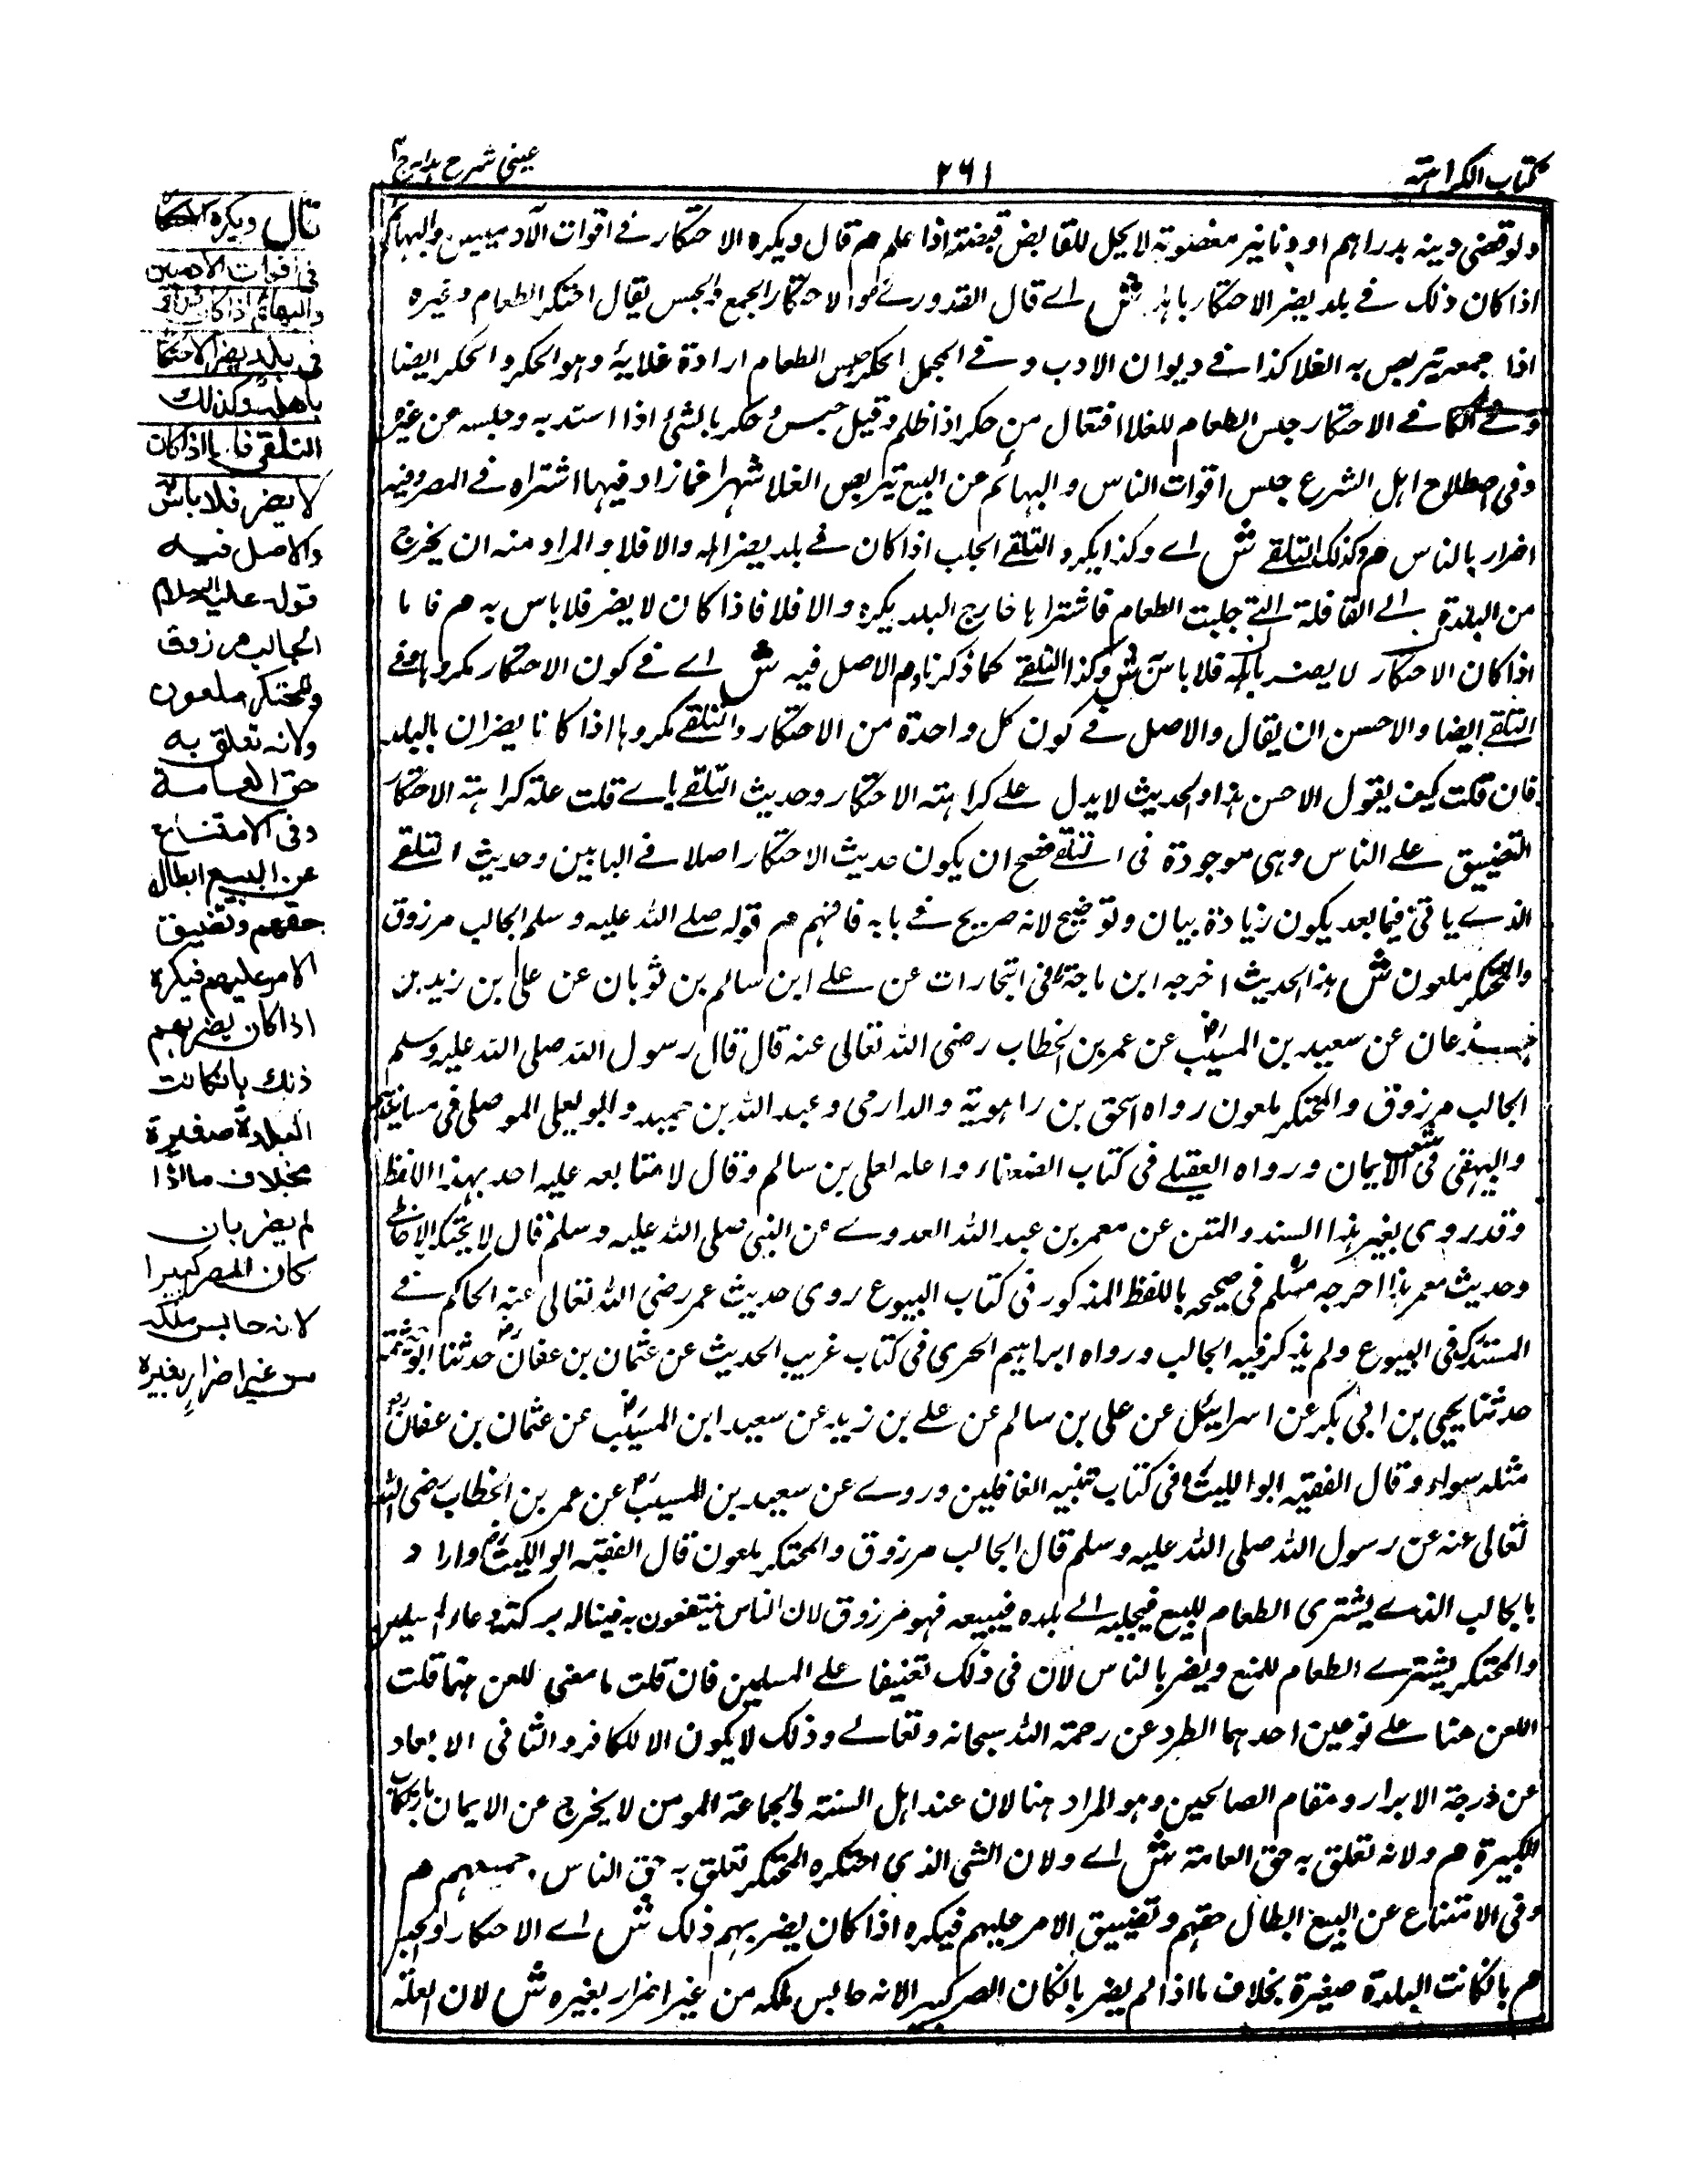 كتاب الكراهية
٢٦١
عينى شرح هداية
ولو قضى دينه بدراهم او دنانير مغصوبة لا يحل للقابض قبضته اذا علم م قال ويكره الاحتكار فے اقوات الآدميين والبهائم
اذا كان ذلك فے بلد يضر الاحتكار باهله ش اے قال القدورے والاحتكار الجمع والحبس يقال احتكر الطعام وغيره
اذا جمعه يتربص به الغلا كذا فے ديوان الادب وفے المجمل الحكر حبس الطعام ارادة غلائه وهو الحكر والحكر ايضا
وفے الاحتكار حبس الطعام للغلا افتعال من حكر اذا ظلم وقيل حبس وحكر بالشئ اذا استبد به وحبسه عن غيره
وفى اصطلاح اهل الشرع حبس اقوات الناس والبهائم عن البيع يتربص الغلا شهرا فما زاد فيها اشتراه فے المصر وفيه
اضرار بالناس م وكذلك التلقے ش اے وكذا يكره التلقے الجلب اذا كان فے بلد يضر اهله والا فلا والمراد منه ان يخرج
من البلدة الے القافلة التے جلبت الطعام فاشتراها خارج البلد يكره والا فلا فاذا كان لا يضر فلا باس به م فاما
اذا كان الاحتكار لا يضر باهله فلا باس ش وكذا التلقے كما ذكرنا م والاصل فيه ش اے فے كون الاحتكار مكروها وفے
التلقے ايضا والاحسن ان يقال والاصل فے كون كل واحدة من الاحتكار والتلقے مكروها اذا كانا يضران بالبلد
فان قلت كيف يقول الاحسن هذا والحديث لا يدل علے كراهته الاحتكار وحديث التلقے ياے قلت علة كراهته الاحتكار
التضييق علے الناس وهى موجودة فى التلقے فصح ان يكون حديث الاحتكار اصلا فے البابين وحديث التلقے
الذے ياتى فيما بعد يكون زيادة بيان وتوضيح لانه صريح فے بابه فافهم م قوله صلے الله عليه وسلم الجالب مرزوق
والمحتكر ملعون ش هذا الحديث اخرجه ابن ماجة فى التجارات عن علے ابن سالم بن ثوبان عن على بن زيد بن
جدعان عن سعيد بن المسيب عن عمر بن الخطاب رضى الله تعالى عنه قال قال رسول الله صلى الله عليه وسلم
الجالب مرزوق والمحتكر ملعون رواه اسحق بن راهوية والدارمى وعبد الله بن حميد وابو يعلى الموصلى فى مسانيدهم
والبيهقى فى شعب الايمان ورواه العقيلے فى كتاب الضعفاء واعله لعلى بن سالم وقال لا متابعه عليه احد بهذا اللفظ
وقد روى بغير هذا السند والمتن عن معمر بن عبد الله العدوے عن النبى صلى الله عليه وسلم قال لا يحتكر الا خاطے
وحديث معمر هذا اخرجه مسلم فى صحيحه باللفظ المذكور فى كتاب البيوع روى حديث عمر رضى الله تعالى عنه الحاكم فے
المستدرك فى البيوع ولم يذكر فيه الجالب ورواه ابراهيم الحربى فى كتاب غريب الحديث عن عثمان بن عفان حدثنا ابو خيثمة
حدثنا يحيى بن ابى بكر عن اسرائيل عن على بن سالم عن علے بن زيد عن سعيد ابن المسيب عن عثمان بن عفان
مثله سواء وقال الفقيه ابو الليث فى كتاب تنبيه الغافلين وروے عن سعيد بن المسيب عن عمر بن الخطاب رضى الله
تعالى عنه عن رسول الله صلى الله عليه وسلم قال الجالب مرزوق والمحتكر ملعون قال الفقيه ابو الليث واراد
بالجالب الذے يشترى الطعام للبيع فيجلبه الے بلده فيبيعه فهو مرزوق لان الناس ينتفعون به فيناله بركة دعاء المسلمين
والمحتكر يشترے الطعام للمنع ويضر بالناس لان فى ذلك تعنيفا علے المسلمين فان قلت ما معنى اللعن هنا قلت
اللعن هنا علے نوعين احدهما الطرد عن رحمة الله سبحانه وتعالے وذلك لا يكون الا للكافر والثانى الابعاد
عن درجة الابرار ومقام الصالحين وهو المراد هنا لان عند اهل السنته والجماعة المومن لا يخرج عن الايمان بارتكاب
الكبيرة م ولانه تعلق به حق العامة ش اے ولان الشى الذى احتكره المحتكر تعلق به حق الناس جميعهم م
وفى الامتناع عن البيع ابطال حقهم وتضييق الامر عليهم فيكره اذا كان يضر بهم ذلك ش اے الاحتكار والحبس
م بان كانت البلدة صغيرة بخلاف ما اذا لم يضر بان كان المصر كبيرا لانه حابس ملكه من غير اضرار بغيره ش لان العلة
قال ويكره الاحتكار
فى اقوات الآدميين
والبهائم اذا كان ذلك
فى بلد يضر الاحتكار
باهله وكذلك
التلقى فاما اذا كان
لا يضر فلا باس
والاصل فيه
قوله عليه السلام
الجالب مرزوق
والمحتكر ملعون
ولانه تعلق به
حق العامة
وفى الامتناع
عن البيع ابطال
حقهم وتضييق
الامر عليهم فيكره
اذا كان يضر بهم
ذلك بان كانت
البلدة صغيرة
بخلاف ما اذا
لم يضر بان
كان المصر كبيرا
لانه حابس ملكه
من غير اضرار بغيره